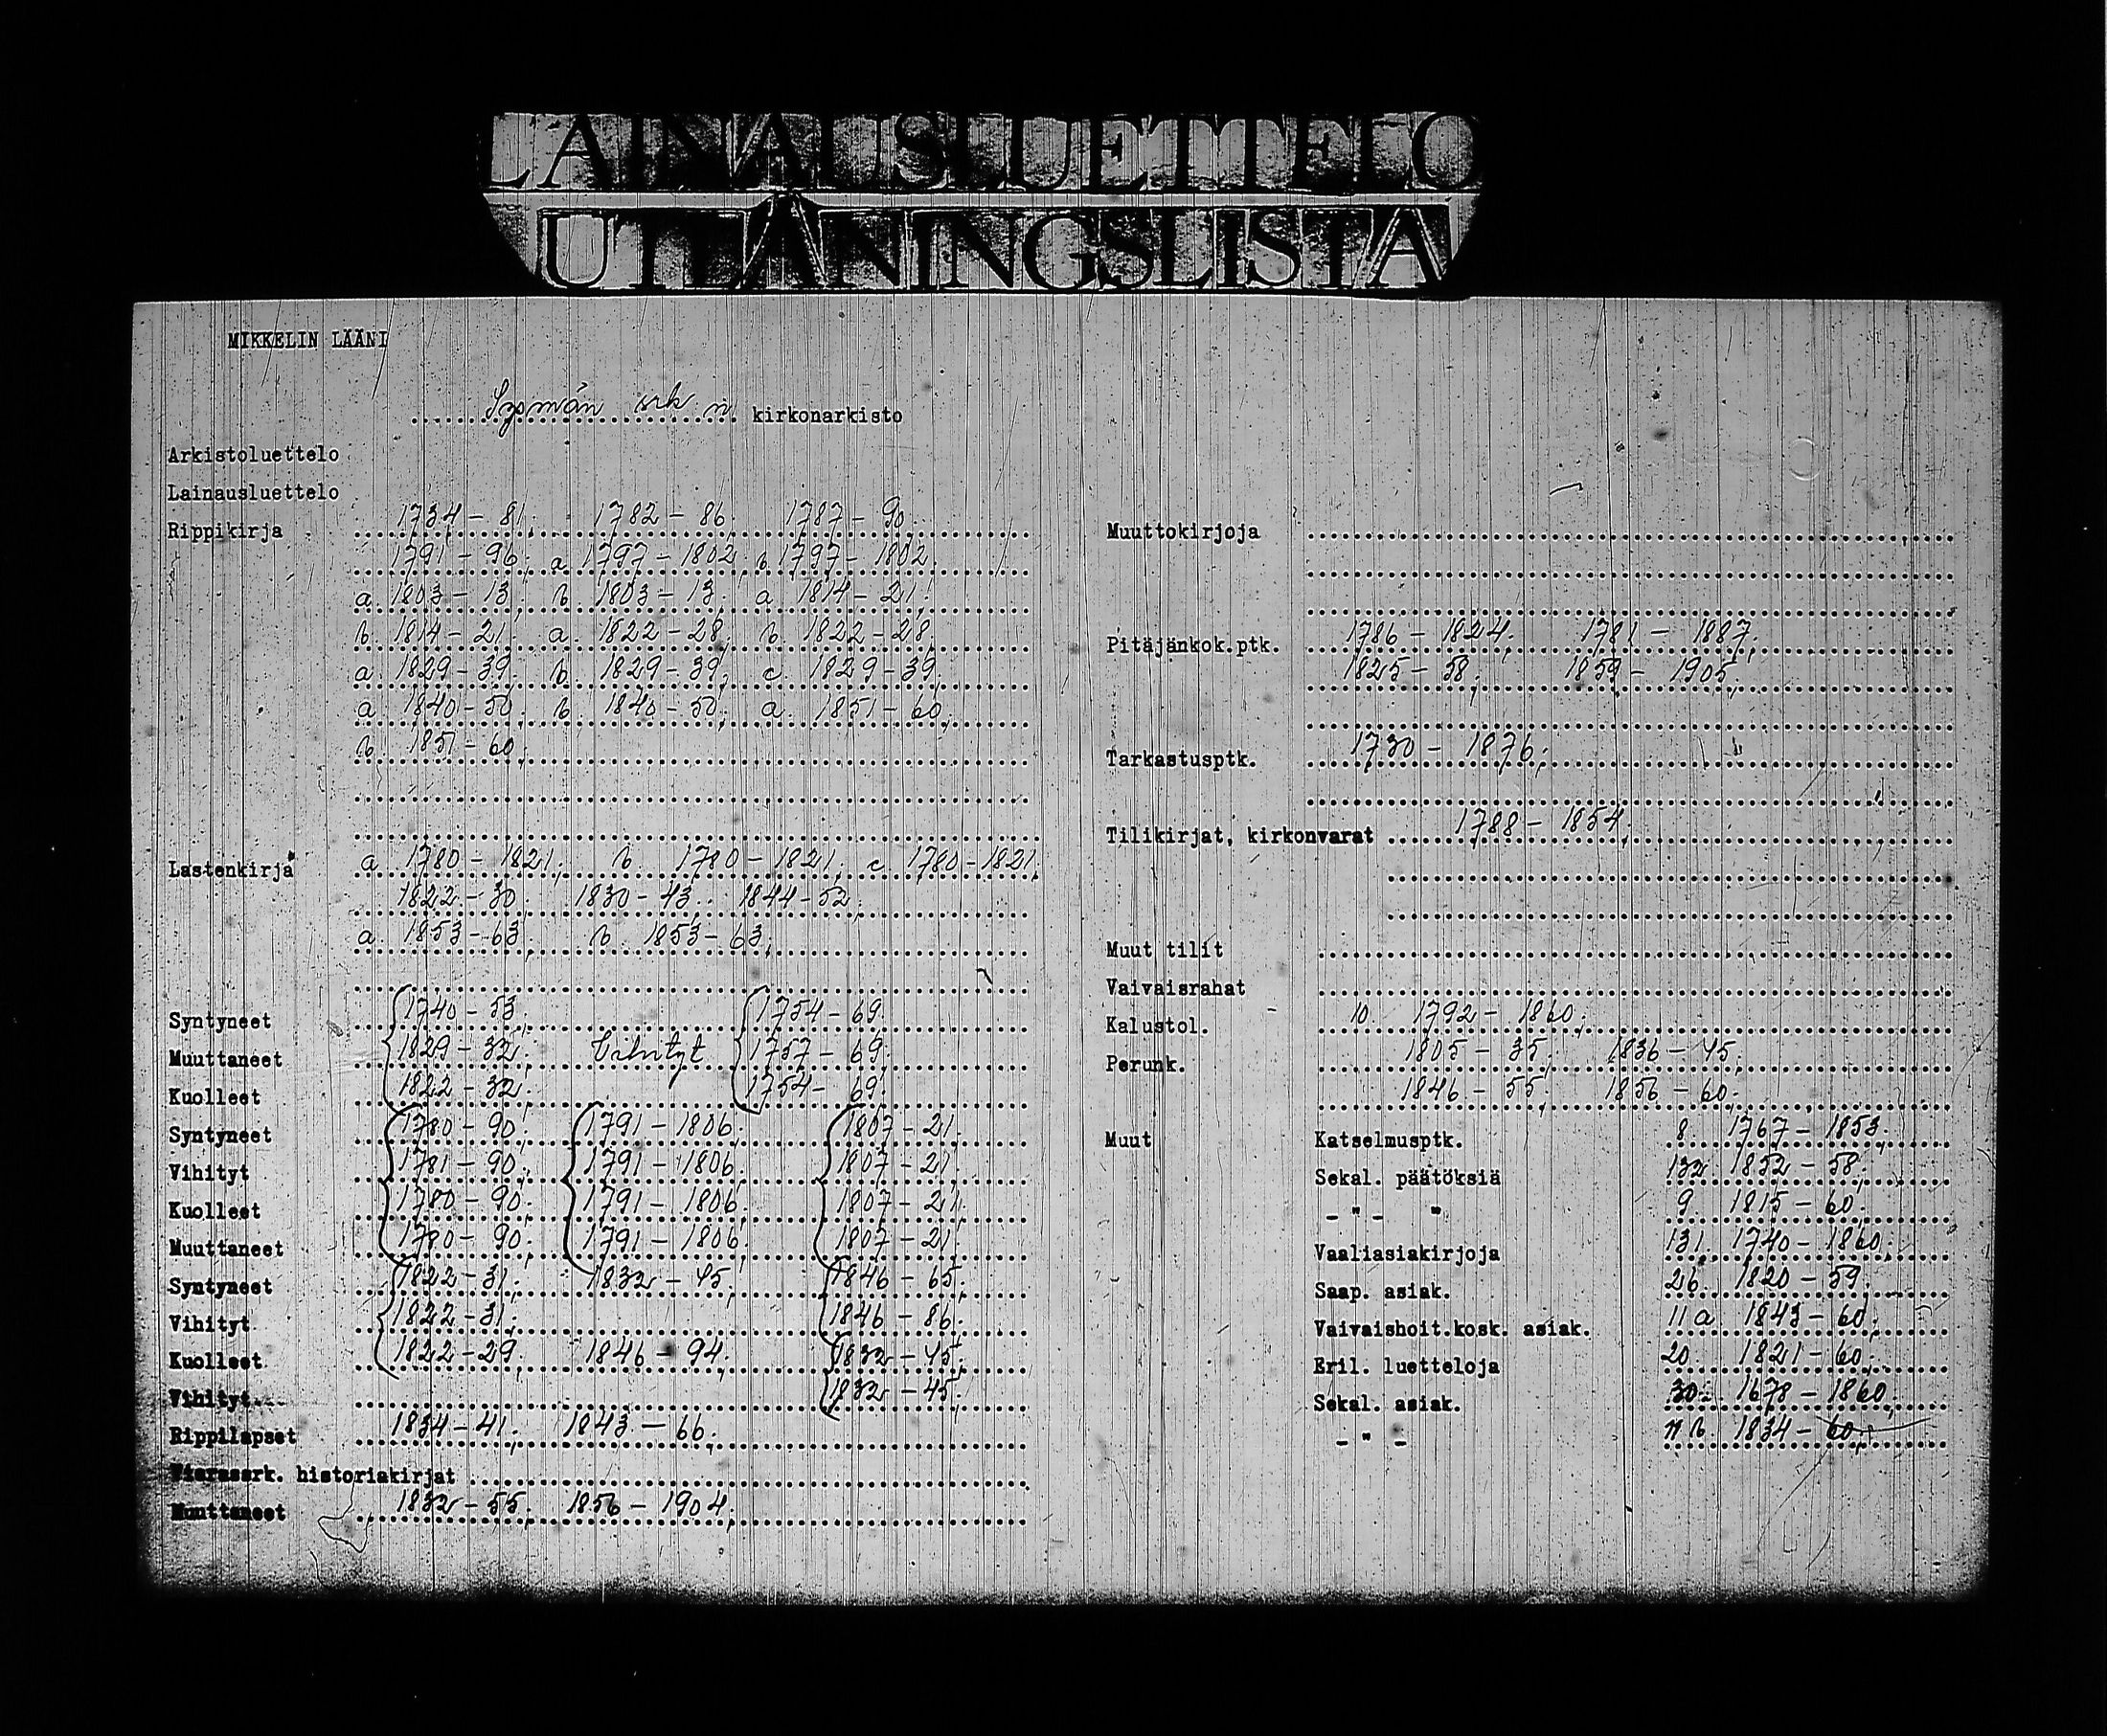 LAINAUSLUETTELO
UTLÅNINGSLISTA
MIKKELIN LÄÄNI
Sysmän srk n. kirkonarkisto
Arkistoluettelo
Lainausluettelo
Rippikirja 1734 - 81; 1782 - 86; 1787 - 90.
1791 - 96; a 1797 - 1802; b 1797 - 1802.
a. 1803 - 13; b. 1803 - 13; a 1814 - 21;
b. 1814 - 21; a. 1822 - 28; b. 1822 - 28.
a. 1829 - 39; b. 1829 - 39; c. 1829 - 39.
a. 1840 - 50; b. 1840 - 50; a. 1851 - 60;
b. 1851 - 60;
Lastenkirja a 1780 - 1821; b. 1780 - 1821; c 1780 - 1821;
1822 - 30; 1830 - 43; 1844 - 52;
a. 1853 - 63; b. 1853 - 63;
Syntyneet 1740 - 53. 1754 - 69.
Muuttaneet 1829 - 32; Vihityt 1757 - 69;
Kuolleet 1822 - 32. 1754 - 69.
Syntyneet 1780 - 90; 1791 - 1806; 1807 - 21.
Vihityt 1781 - 90; 1791 - 1806. 1807 - 21.
Kuolleet 1780 - 90; 1791 - 1806; 1807 - 21.
Muuttaneet 1780 - 90; 1791 - 1806; 1807 - 21.
Syntyneet 1822 - 31; 1832 - 45; 1846 - 65;
Vihityt 1822 - 31; 1846 - 86.
Kuolleet 1822 - 29; 1846 - 94; 1832 - 45;
Vihityt 1832 - 45;
Rippilapset 1834 - 41; 1843 - 66;
Vierassrk. historiakirjat
Muuttaneet 1832 - 55; 1856 - 1904;
Muuttokirjoja
Pitäjänkok.ptk. 1786 - 1824; 1781 - 1887;
1825 - 58; 1859 - 1905;
Tarkastusptk. 1730 - 1876;
Tilikirjat, kirkonvarat 1788 - 1854;
Muut tilit
Vaivaisrahat
Kalustol. 10. 1792 - 1860;
Perunk. 1805 - 35; 1836 - 45;
1846 - 55; 1856 - 60;
Muut Katselmusptk. 8 1767 - 1853;
Sekal. päätöksiä 132 1852 - 58;
- " - " 9 1815 - 60.
Vaaliasiakirjoja 131 1740 - 1860;
Saap. asiak. 26 1820 - 59.
Vaivaishoit.kosk. asiak. 11 a 1843 - 60;
Eril. luetteloja 20 1821 - 60;
Sekal. asiak. 30. 1678 - 1860;
- " - 11 b. 1834 - 60;